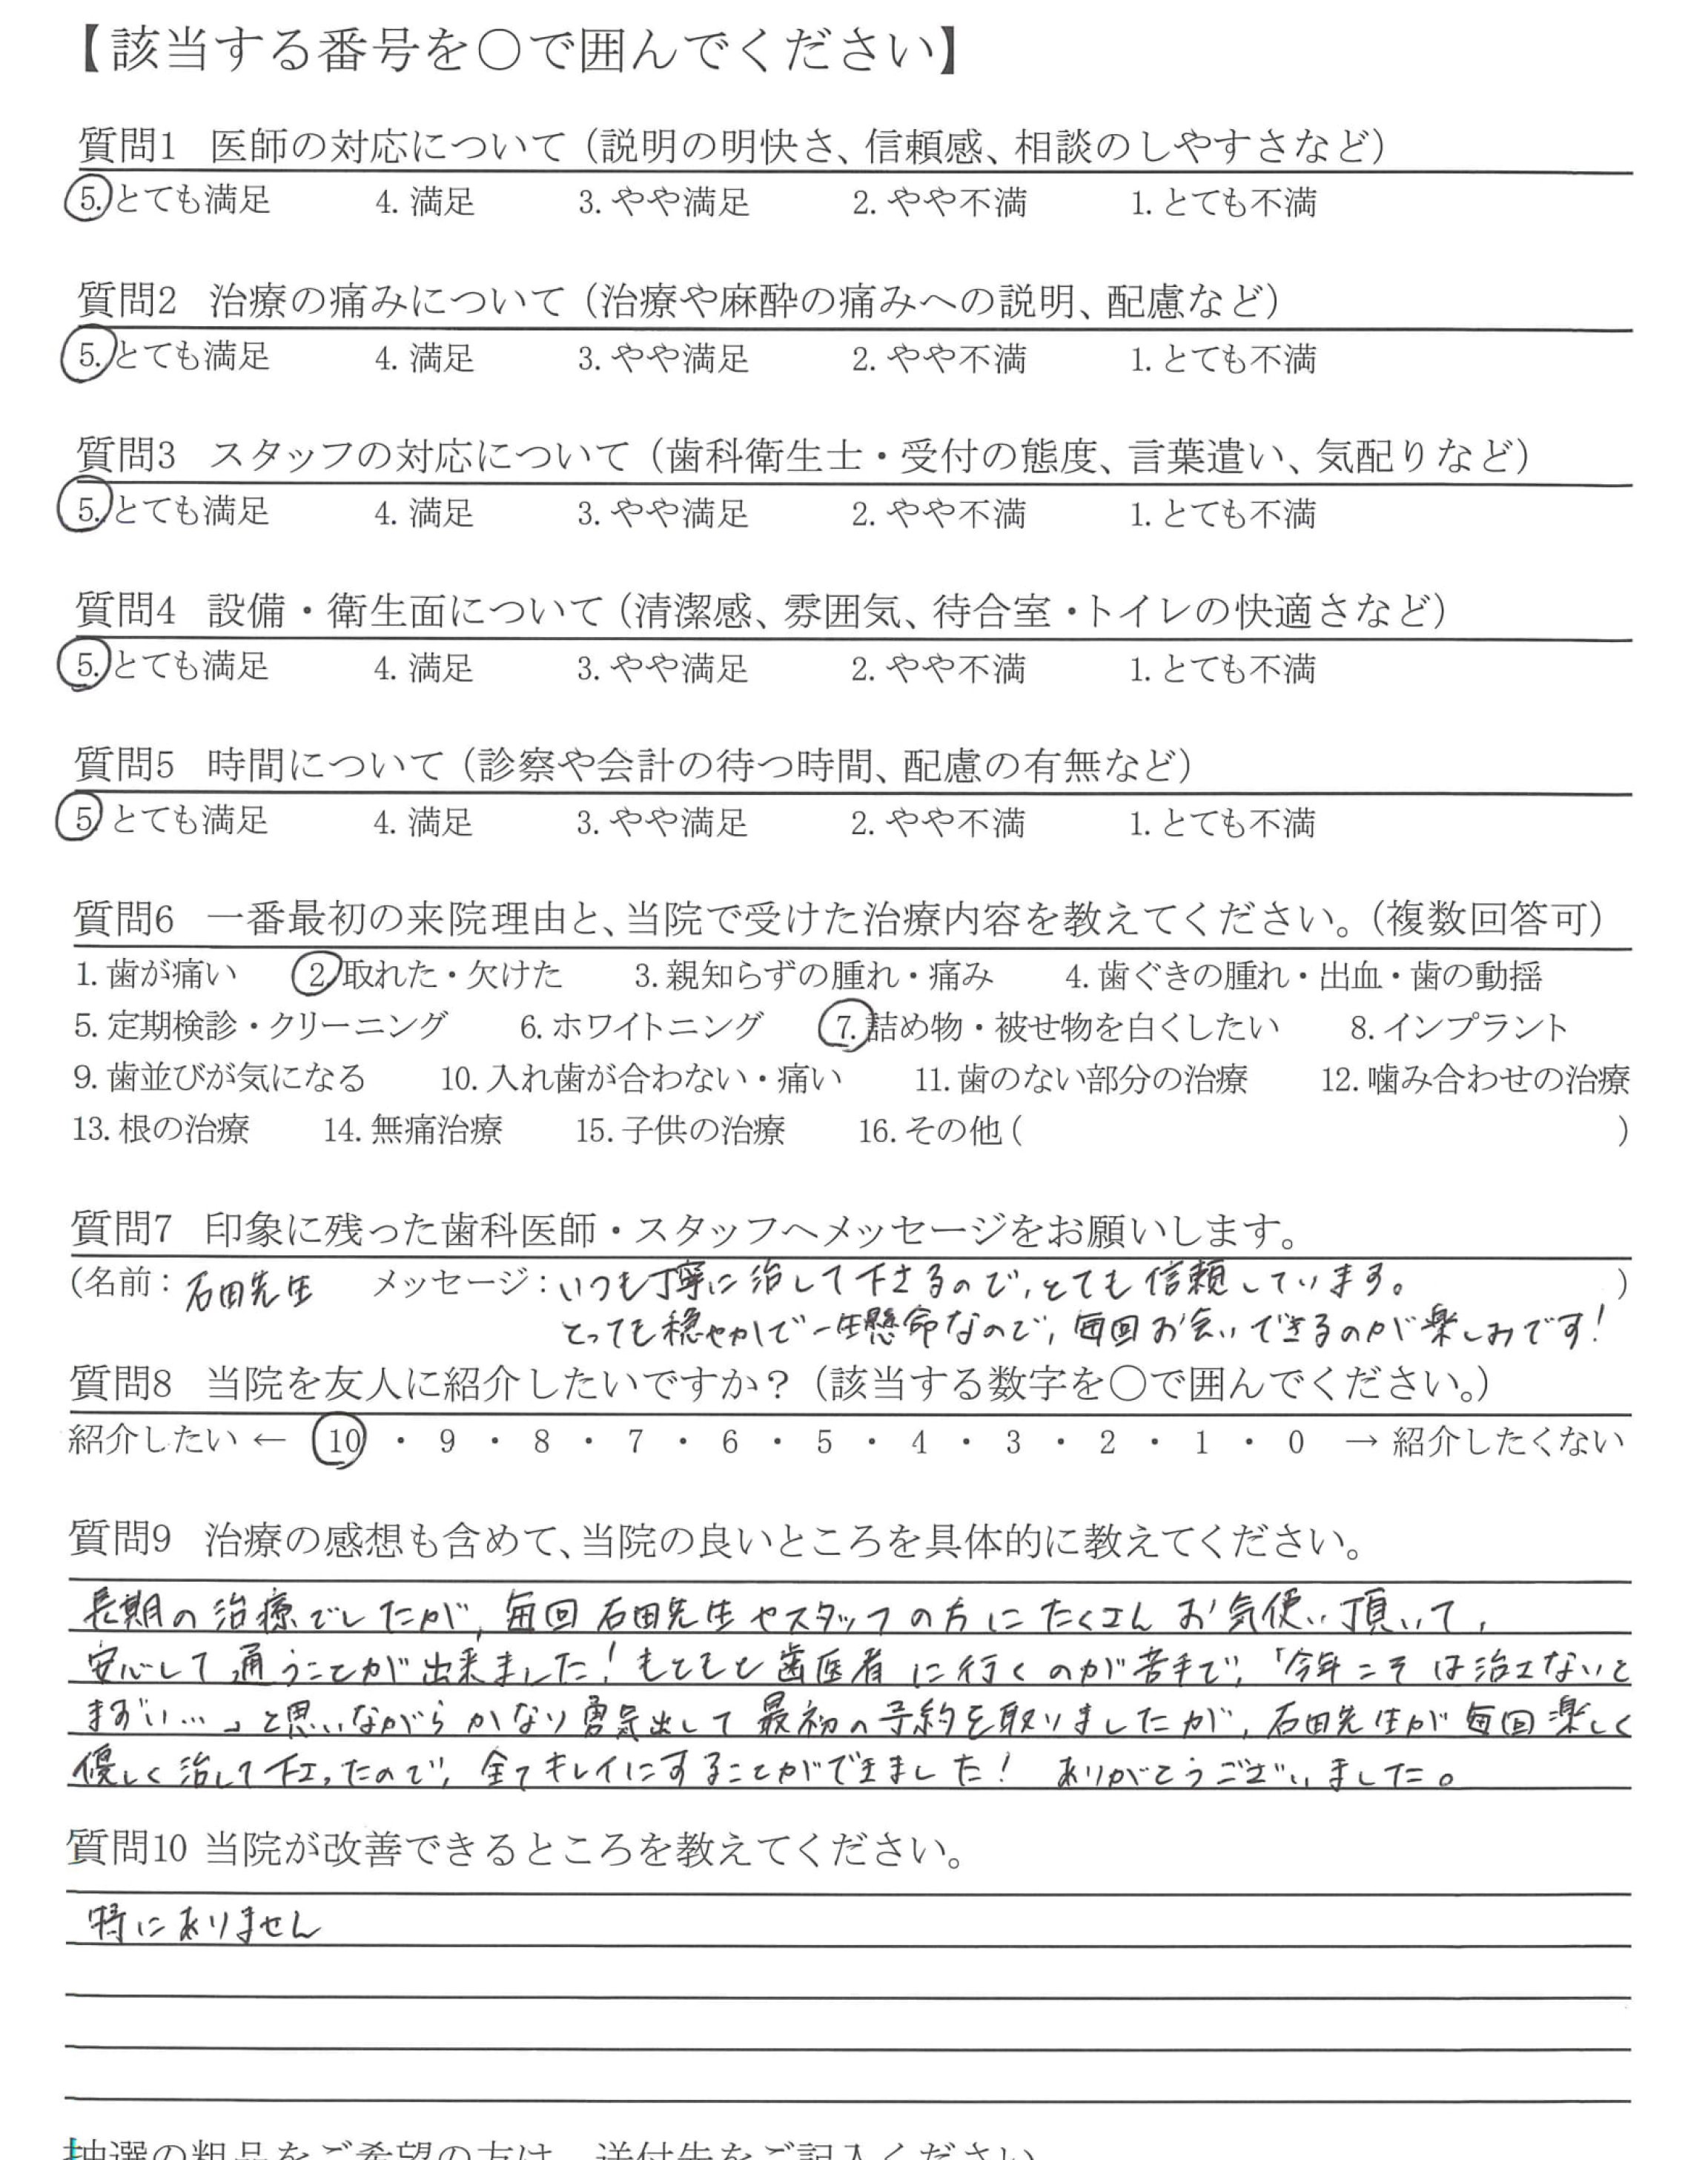 【該当する番号を○で囲んでください】
質問1 医師の対応について（説明の明快さ、信頼感、相談のしやすさなど）
5. とても満足 4. 満足 3. やや満足 2. やや不満 1. とても不満
質問2 治療の痛みについて（治療や麻酔の痛みへの説明、配慮など）
5. とても満足 4. 満足 3. やや満足 2. やや不満 1. とても不満
質問3 スタッフの対応について（歯科衛生士・受付の態度、言葉遣い、気配りなど）
5. とても満足 4. 満足 3. やや満足 2. やや不満 1. とても不満
質問4 設備・衛生面について（清潔感、雰囲気、待合室・トイレの快適さなど）
5. とても満足 4. 満足 3. やや満足 2. やや不満 1. とても不満
質問5 時間について（診察や会計の待つ時間、配慮の有無など）
5. とても満足 4. 満足 3. やや満足 2. やや不満 1. とても不満
質問6 一番最初の来院理由と、当院で受けた治療内容を教えてください。（複数回答可）
1. 歯が痛い 2. 取れた・欠けた 3. 親知らずの腫れ・痛み 4. 歯ぐきの腫れ・出血・歯の動揺
5. 定期検診・クリーニング 6. ホワイトニング 7. 詰め物・被せ物を白くしたい 8. インプラント
9. 歯並びが気になる 10. 入れ歯が合わない・痛い 11. 歯のない部分の治療 12. 噛み合わせの治療
13. 根の治療 14. 無痛治療 15. 子供の治療 16. その他（ ）
質問7 印象に残った歯科医師・スタッフへメッセージをお願いします。
（名前：石田先生 メッセージ：いつも丁寧に治して下さるので、とても信頼しています。）
とっても穏やかで一生懸命なので、毎回お会いできるのが楽しみです！
質問8 当院を友人に紹介したいですか？（該当する数字を○で囲んでください。）
紹介したい ← 10 ・ 9 ・ 8 ・ 7 ・ 6 ・ 5 ・ 4 ・ 3 ・ 2 ・ 1 ・ 0 → 紹介したくない
質問9 治療の感想も含めて、当院の良いところを具体的に教えてください。
長期の治療でしたが、毎回石田先生やスタッフの方にたくさんお気使い頂いて、
安心して通うことが出来ました！もともと歯医者に行くのが苦手で、「今年こそは治さないと
まずい…」と思いながらかなり勇気出して最初の予約を取りましたが、石田先生が毎回楽しく
優しく治して下さったので、全てキレイにすることができました！ ありがとうございました。
質問10 当院が改善できるところを教えてください。
特にありません
抽選の粗品をご希望の方は、送付先をご記入ください